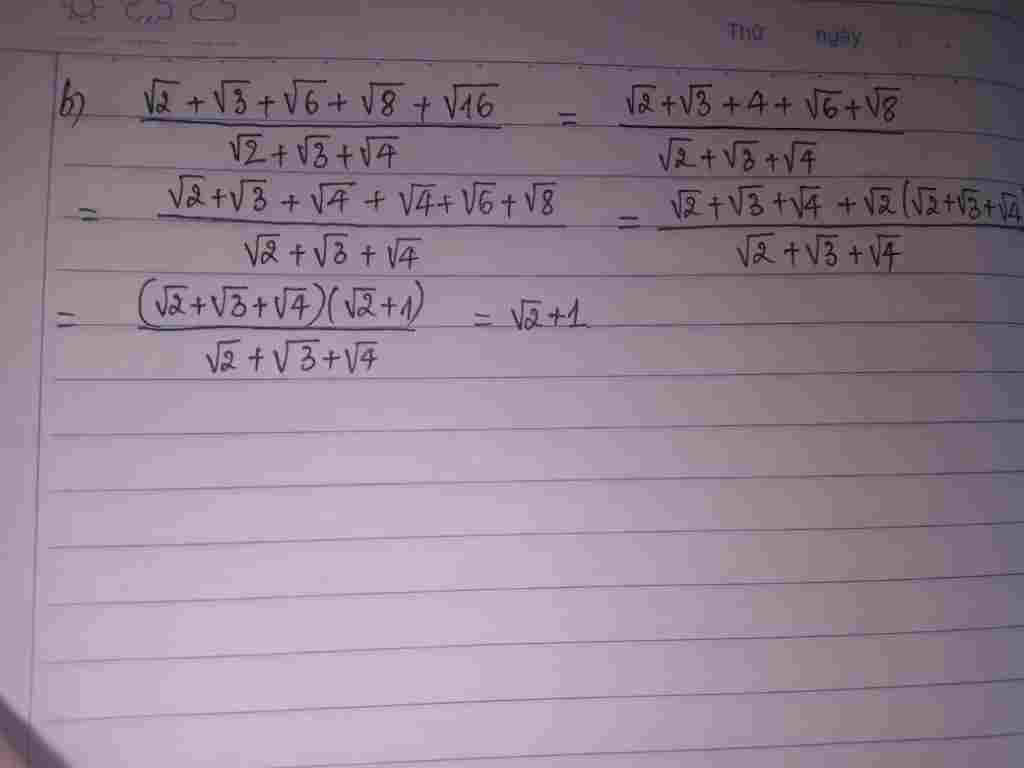 Thứ ngày
b) (√2 + √3 + √6 + √8 + √16) / (√2 + √3 + √4) = (√2 + √3 + 4 + √6 + √8) / (√2 + √3 + √4)
= (√2 + √3 + √4 + √4 + √6 + √8) / (√2 + √3 + √4) = (√2 + √3 + √4 + √2 (√2 + √3 + √4) / (√2 + √3 + √4)
= (√2 + √3 + √4)(√2 + 1) / (√2 + √3 + √4) = √2 + 1